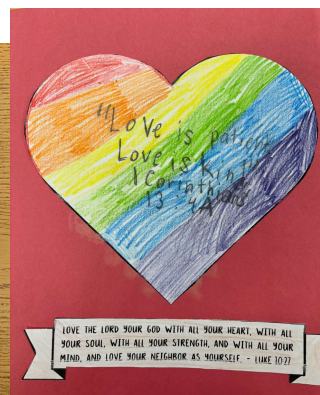 "Love is patient,
Love is kind"
1 Corinthians
13:4A
LOVE THE LORD YOUR GOD WITH ALL YOUR HEART, WITH ALL
YOUR SOUL, WITH ALL YOUR STRENGTH, AND WITH ALL YOUR
MIND, AND LOVE YOUR NEIGHBOR AS YOURSELF. - LUKE 10:27